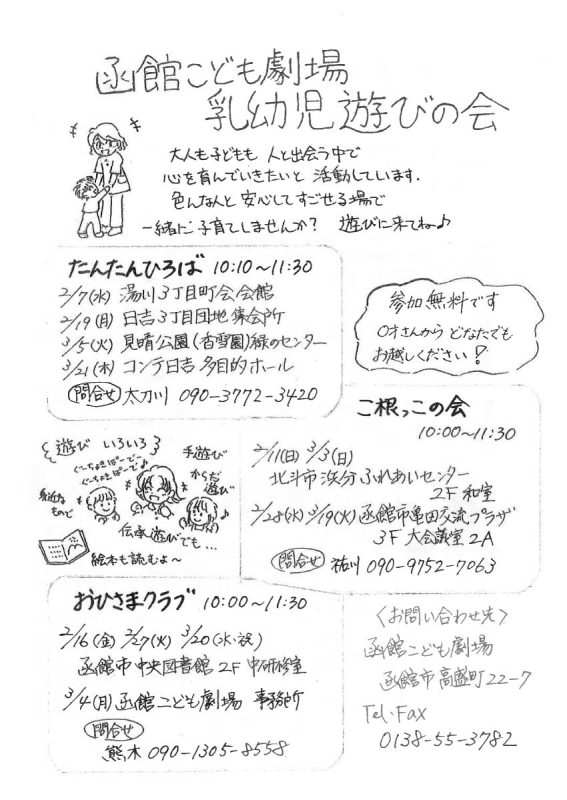 函館こども劇場
乳幼児遊びの会
大人も子どもも 人と出会う中で
心を育んでいきたいと 活動しています.
色んな人と 安心してすごせる場で
一緒に子育てしませんか? 遊びに来てね♪
たんたんひろば 10:10〜11:30
2/7(水) 湯川3丁目町会会館
2/19(月) 日吉3丁目団地集会所
3/5(火) 見晴公園(香雪園)緑のセンター
3/21(木) コンテ日吉 多目的ホール
問合せ 太刀川 090-3772-3420
参加無料です
0才さんから どなたでも
お越しください!
ご根っこの会
10:00〜11:30
2/11(日) 3/3(日)
北斗市 浜分 ふれあいセンター
2F 和室
2/28(水) 3/19(火) 函館市亀田交流プラザ
3F 大会議室 2A
問合せ 祐川 090-9752-7063
遊び いろいろ
ぐーちょきぱーでー♪
ぐーちょきぱーで♪
手遊び
からだ
遊び
身近な
もので
伝承遊びでも...
絵本も読むよ〜
おひさまクラブ 10:00〜11:30
2/16(金) 2/27(火) 3/20(水・祝)
函館市中央図書館 2F 中研修室
3/4(月) 函館こども劇場 事務所
問合せ
熊木 090-1305-8558
〈お問い合わせ先〉
函館こども劇場
函館市高盛町22-7
Tel・Fax
0138-55-3782